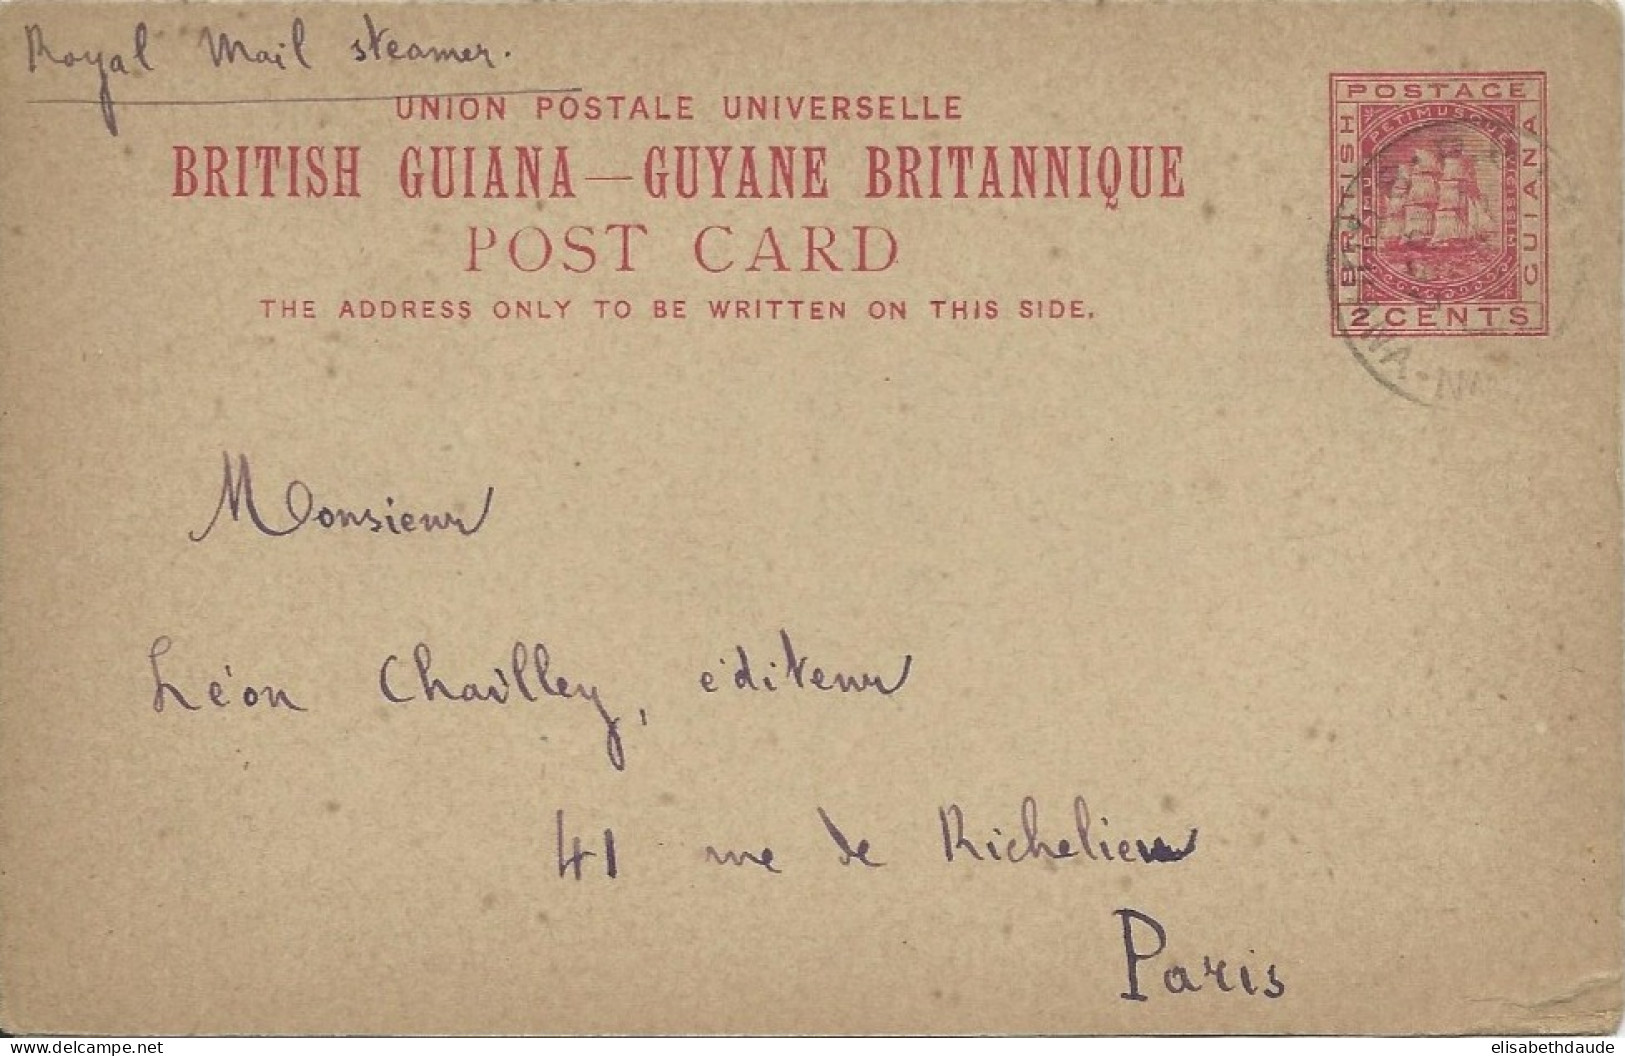 Royal Mail steamer.
UNION POSTALE UNIVERSELLE
BRITISH GUIANA — GUYANE BRITANNIQUE
POST CARD
THE ADDRESS ONLY TO BE WRITTEN ON THIS SIDE.
POSTAGE
BRITISH
GUIANA
DAMUS PETIMUSQUE VICISSIM
2 CENTS
Monsieur
Léon Chailley, éditeur
41 rue de Richelieu
Paris
delcampe.net
elisabethdaude